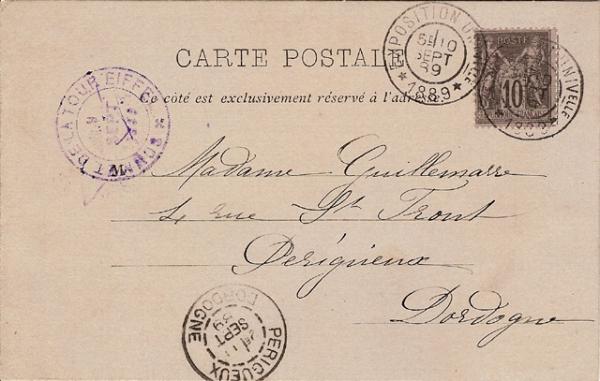 CARTE POSTALE
Ce côté est exclusivement réservé à l'adresse
EXPOSITION
SEPT
89
* 1889 *
POSTE
10
UNIVELLE
SOMMET DE LA TOUR EIFFEL
Madame Guillemarre
4 rue St Front
Périgueux
Dordogne
PERIGUEUX
SEPT
89
DORDOGNE